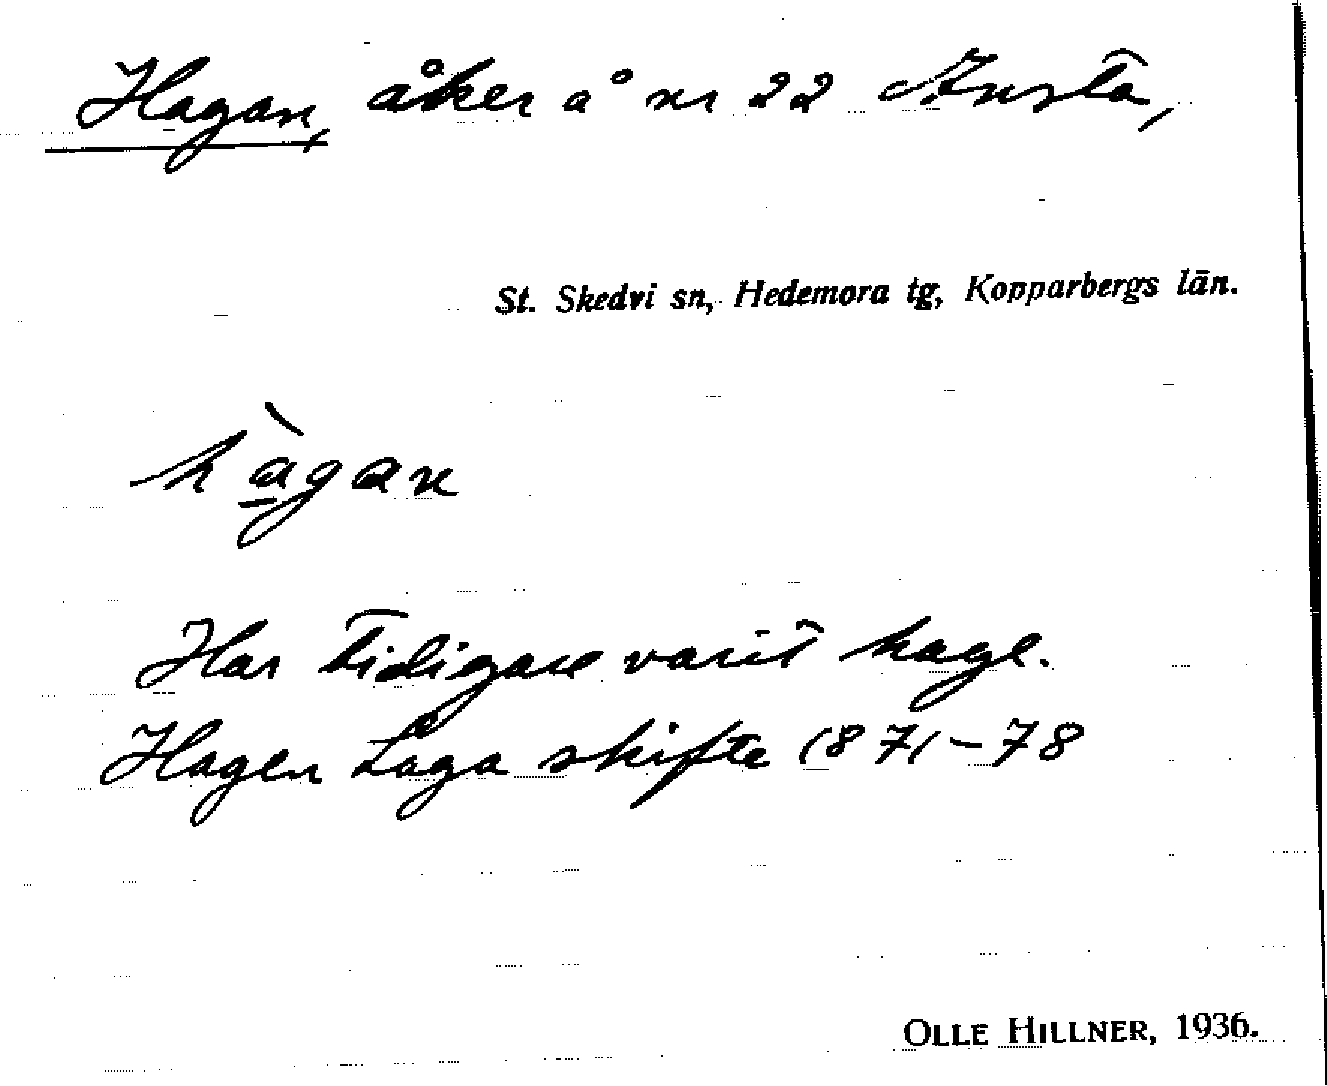 Hagan, åker å nr 22 Ansta,
St. Skedvi sn, Hedemora tg, Kopparbergs län.
hà̱gan
Har tidigare varit hage.
Hagen Laga skifte 1871–78
OLLE HILLNER, 1936.